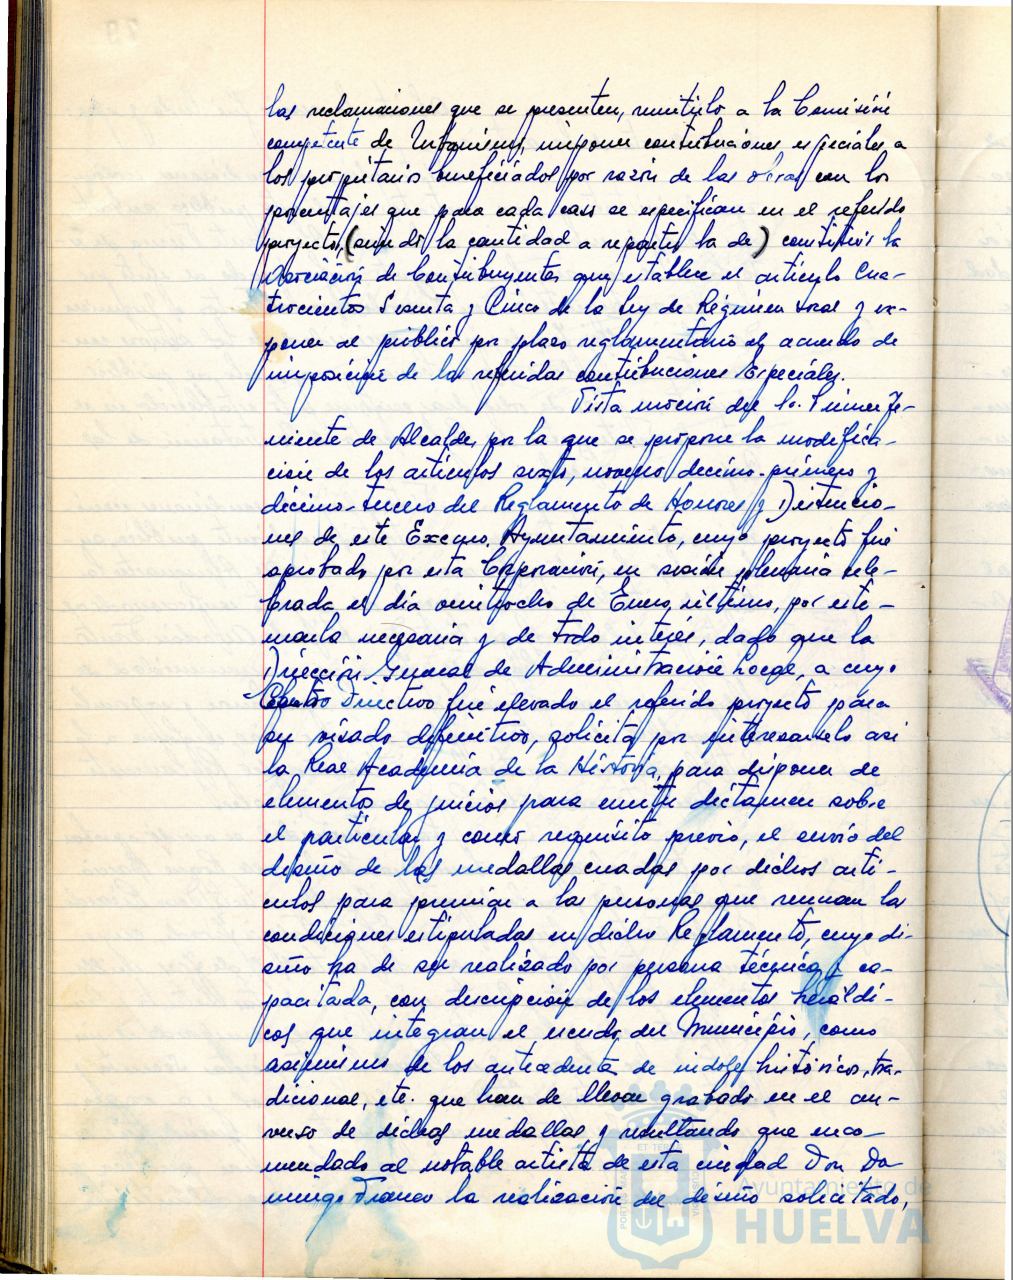 las reclamaciones que se presenten, remitirlo a la Comisión
competente de Urbanismo, imponer contribuciones especiales a
los propietarios beneficiados por razón de las obras con los
porcentajes que para cada caso se especifican en el referido
proyecto, (siendo la cantidad a repartir la de) constituir la
Asociación de Contribuyentes que establece el artículo Cua-
trocientos Sesenta y Cinco de la Ley de Régimen Local y ex-
poner al público por plazo reglamentario el acuerdo de
imposición de las referidas contribuciones Especiales.
Vista moción del Sr. Primer Te-
niente de Alcalde, por la que se propone la modifica-
ción de los artículos sexto, noveno décimo-primero y
décimo-tercero del Reglamento de Honores y Distincio-
nes de este Excmo. Ayuntamiento, cuyo proyecto fué
aprobado por esta Corporación, en sesión plenaria cele-
brada el día veintiocho de Enero último, por esti-
marla necesaria y de todo interés, dado que la
Dirección General de Administración Local, a cuyo
Centro Directivo fué elevado el referido proyecto para
su visado definitivo, solicita por interesarselo así
la Real Academia de la Historia, para disponer de
elementos de juicios para emitir dictamen sobre
el particular y como requisito previo, el envío del
diseño de las medallas creadas por dichos artí-
culos para premiar a las personas que reunan las
condiciones estipuladas en dicho Reglamento, cuyo di-
seño ha de ser realizado por persona técnica y ca-
pacitada, con descripción de los elementos heráldi-
cos que integran el escudo del Municipio, como
asimismo de los antecedentes de indole históricos, tra-
dicional, etc. que han de llevar grabado en el an-
verso de dichas medallas y resultando que enco-
mendado al notable artista de esta ciudad Don Do-
mingo Franco la realización del diseño solicitado,
Ayuntamiento de
HUELVA